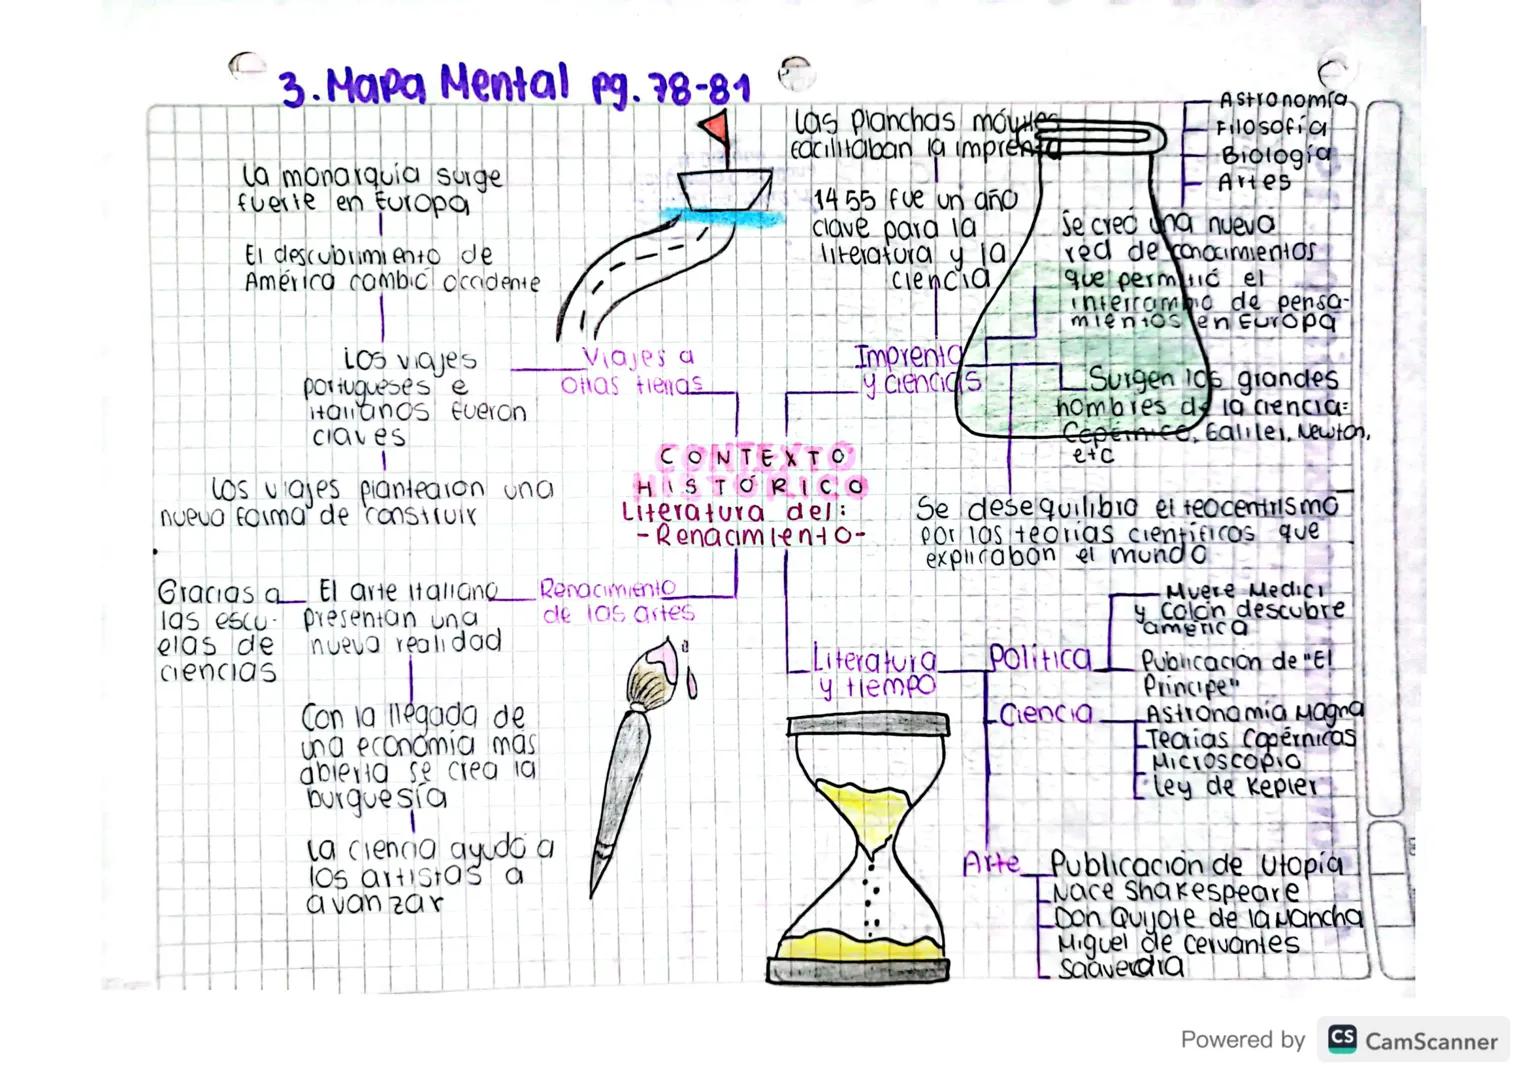 3. Mapa Mental pg. 78-81
La monarquía surge
fuerte en Europa
El descubrimiento de
América cambió occidente
Los viajes
portugueses e
italianos fueron
claves
Los viajes plantearon una
nueva forma de construir
Viajes a
otras tierras
Las planchas móviles
facilitaban la imprenta
1455 fue un año
clave para la
literatura y la
ciencia
Imprenta
y ciencias
Astronomía
Filosofía
Biología
Artes
Se creó una nueva
red de conocimientos
que permitió el
intercambio de pensa-
mientos en Europa
Surgen los grandes
hombres de la ciencia:
Copérnico, Galilei, Newton,
etc
Se desequilibro el teocentrismo
por las teorias científicos que
explicaban el mundo
CONTEXTO
HISTÓRICO
Literatura del:
-Renacimiento-
Renacimiento
de las artes
El arte italiano
presentan una
nueva realidad
Gracias a
las escu-
elas de
ciencias
Con la llegada de
una economía mas
abierta se crea la
burguesía
La ciencia ayudó a
los artistas a
avanzar
Literatura
y tiempo
Política
Muere Medici
y Colón descubre
america
Publicación de "El
Principe"
Ciencia
Astronomia Magna
Teorias Copérnicas
Microscopio
Ley de Kepler
Arte
Publicación de Utopía
Nace Shakespeare
Don Quijote de la Mancha
Miguel de Cervantes
Saavedra
Powered by CS CamScanner